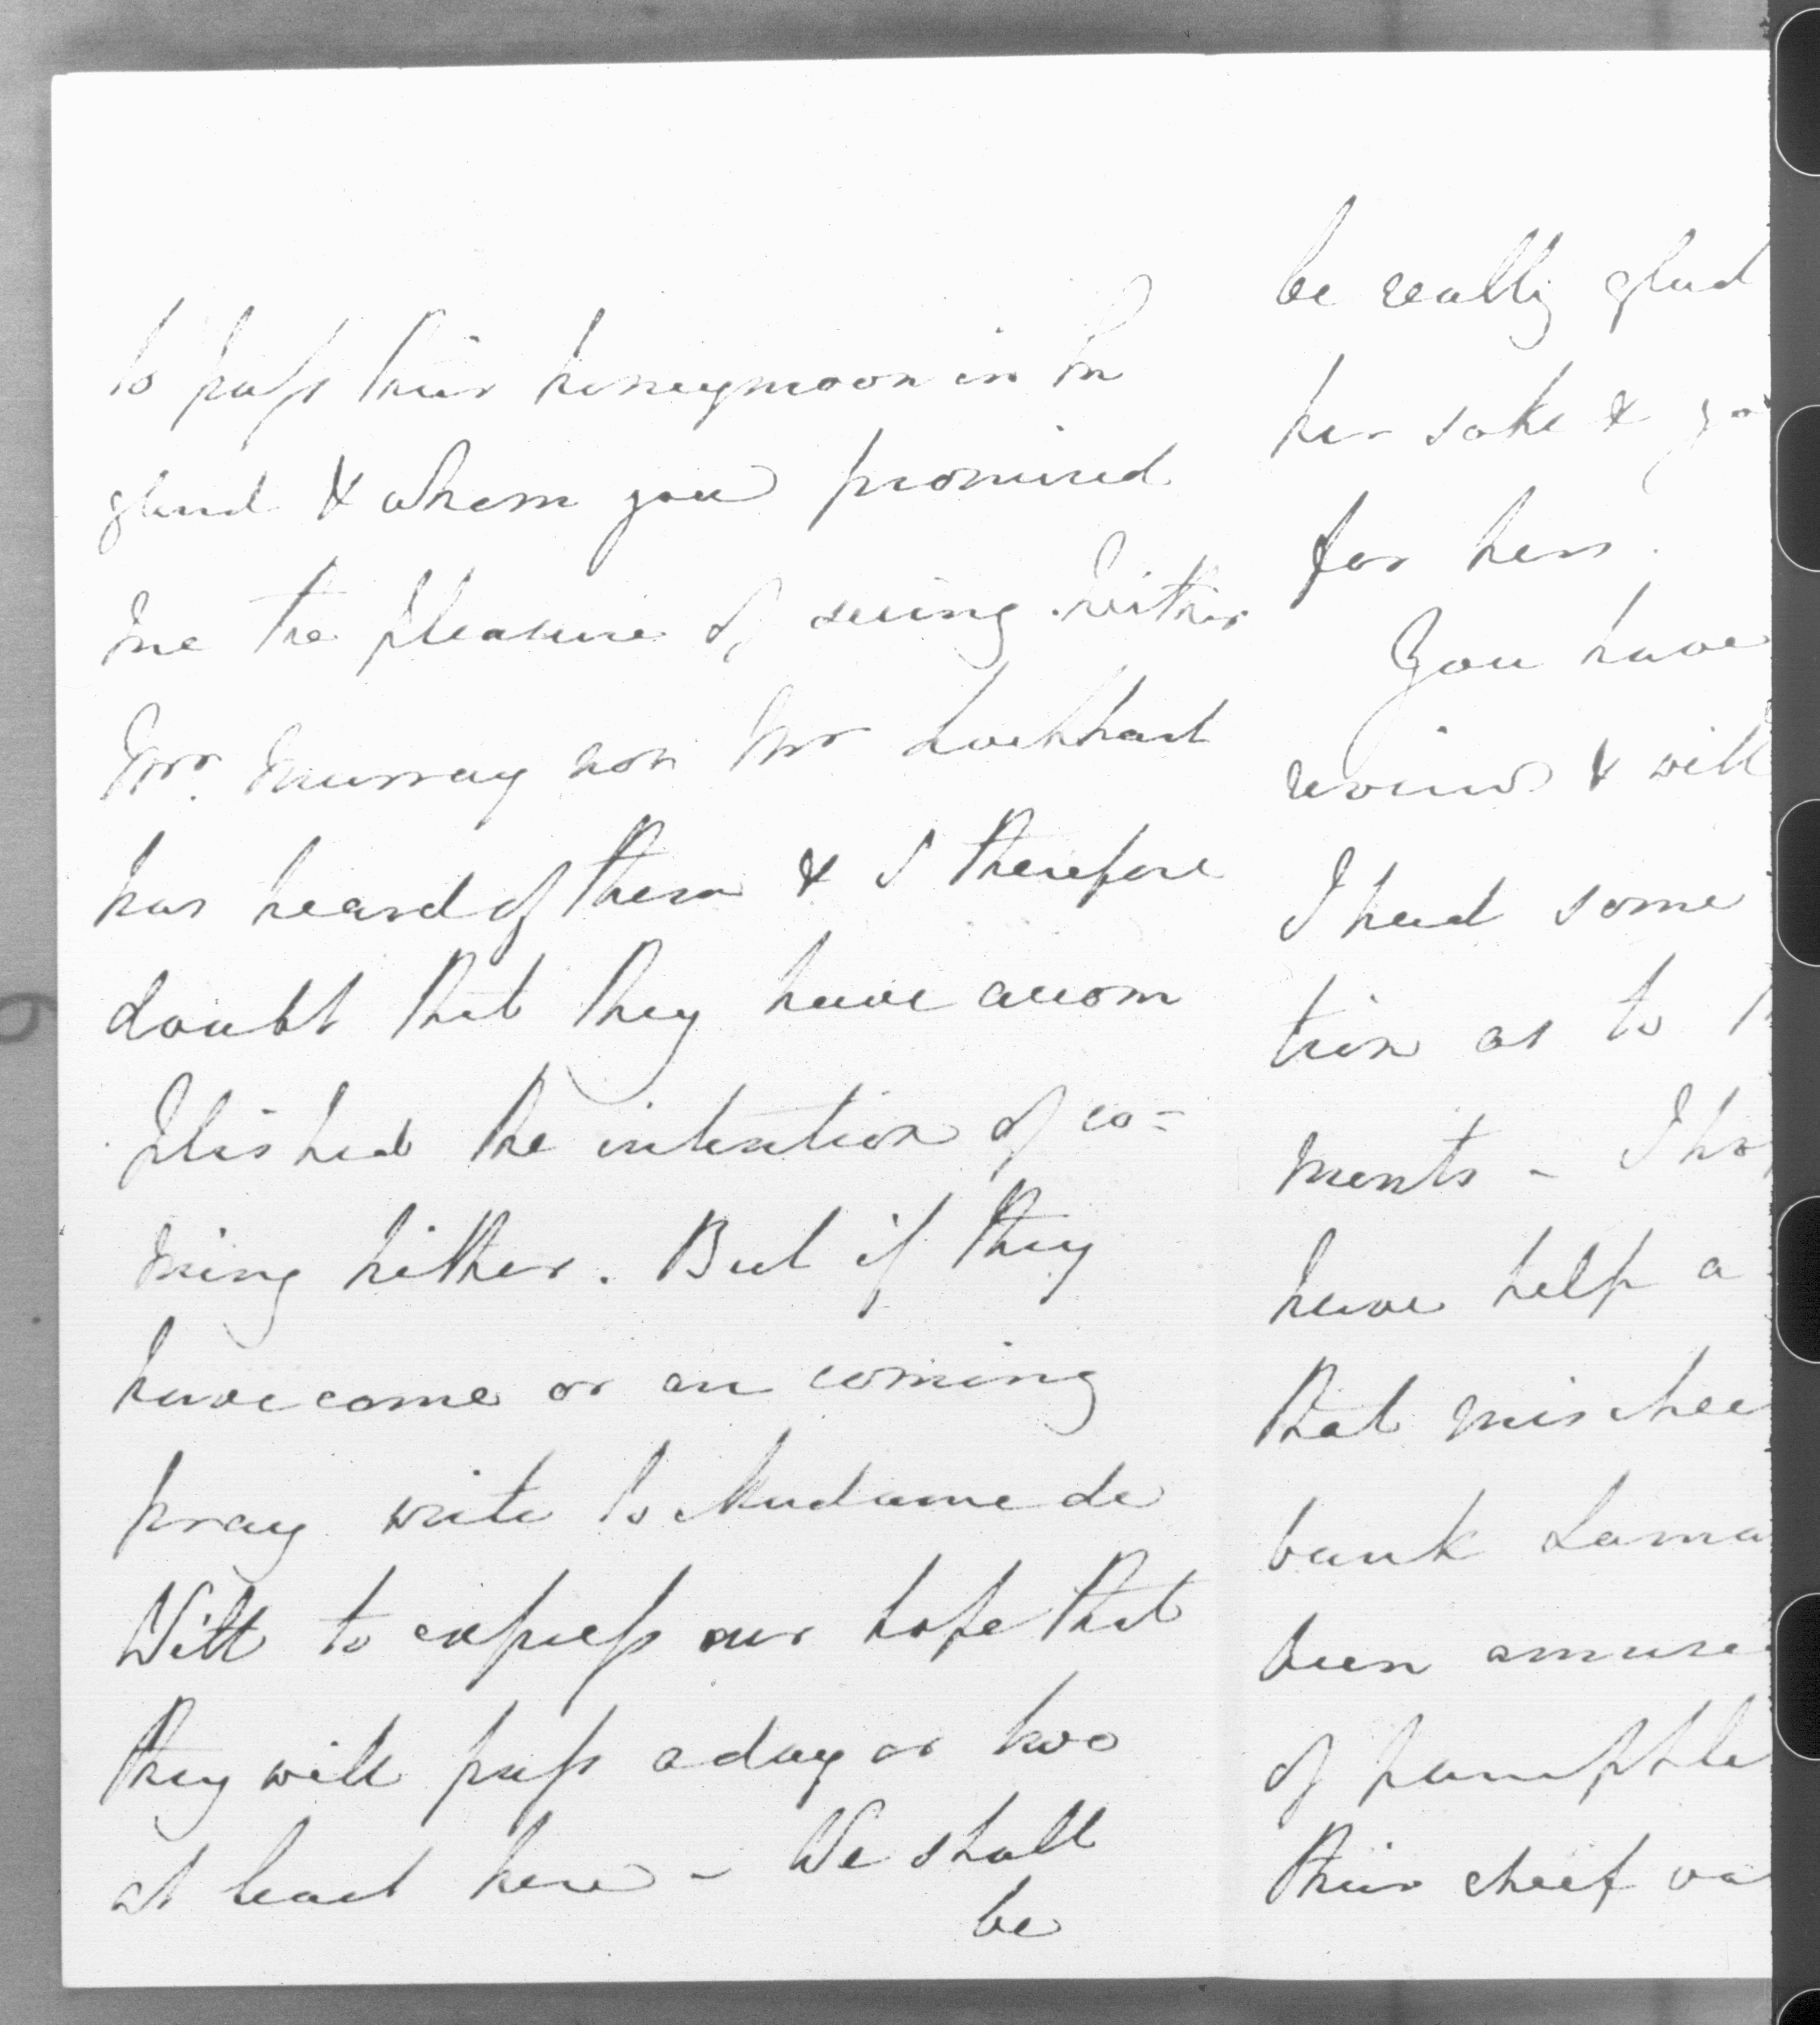 to pass their honeymoon in En
gland & whom you promised
me the pleasure of seeing. Neither
Mr. Murray nor Mr Lockhart
has heard of them & I therefore
doubt that they have accom
plished the intention of co=
ming hither. But if they
have come or are coming
pray write to Madame de
Witt to express our hope that
they will pass a day or two
at least here - We shall
be
be really glad
her sake & yo
for hers.
You have
review & will
I had some
tion as to
ments - I ho
have help a
that mischee
bank Lama
been amuse
of pamphle
their cheef va